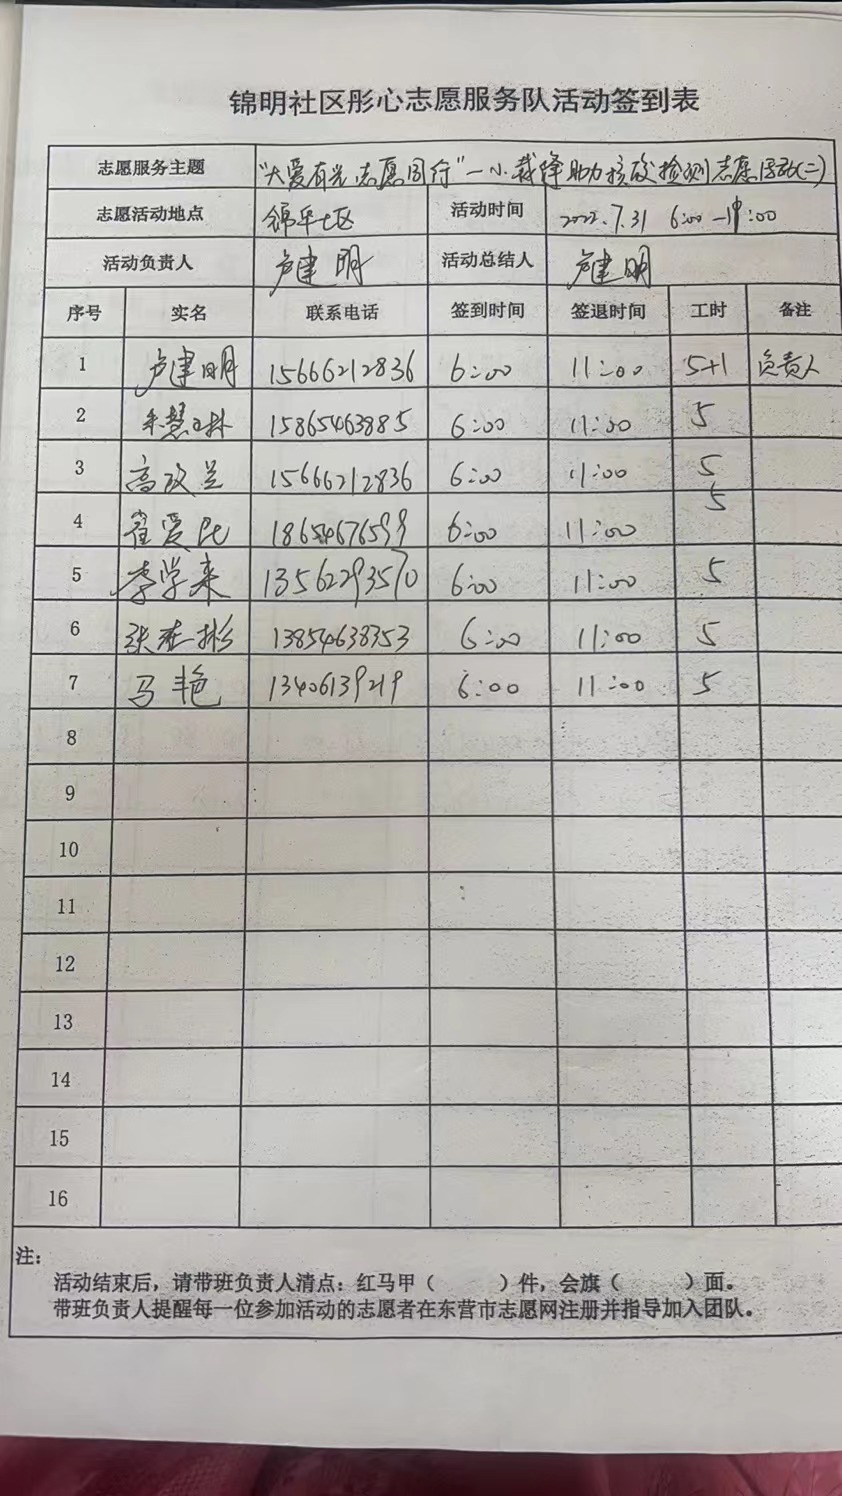 锦明社区彤心志愿服务队活动签到表
志愿服务主题 "大爱有光 志愿同行"一小裁缝助力核酸检测志愿活动(二)
志愿活动地点 锦华社区 活动时间 2022.7.31 6:00-11:00
活动负责人 卢建明 活动总结人 卢建明
序号 实名 联系电话 签到时间 签退时间 工时 备注
1 卢建明 15666212836 6:00 11:00 5+1 负责人
2 慧 15865463885 6:00 11:00 5
3 高改兰 15666212836 6:00 11:00 5
4 崔爱民 18654676599 6:00 11:00 5
5 李学来 13562293570 6:00 11:00 5
6 张 彬 13854638353 6:00 11:00 5
7 马艳 13406139219 6:00 11:00 5
8
9
10
11
12
13
14
15
16
注:
活动结束后，请带班负责人清点：红马甲（ ）件，会旗（ ）面。
带班负责人提醒每一位参加活动的志愿者在东营市志愿网注册并指导加入团队。